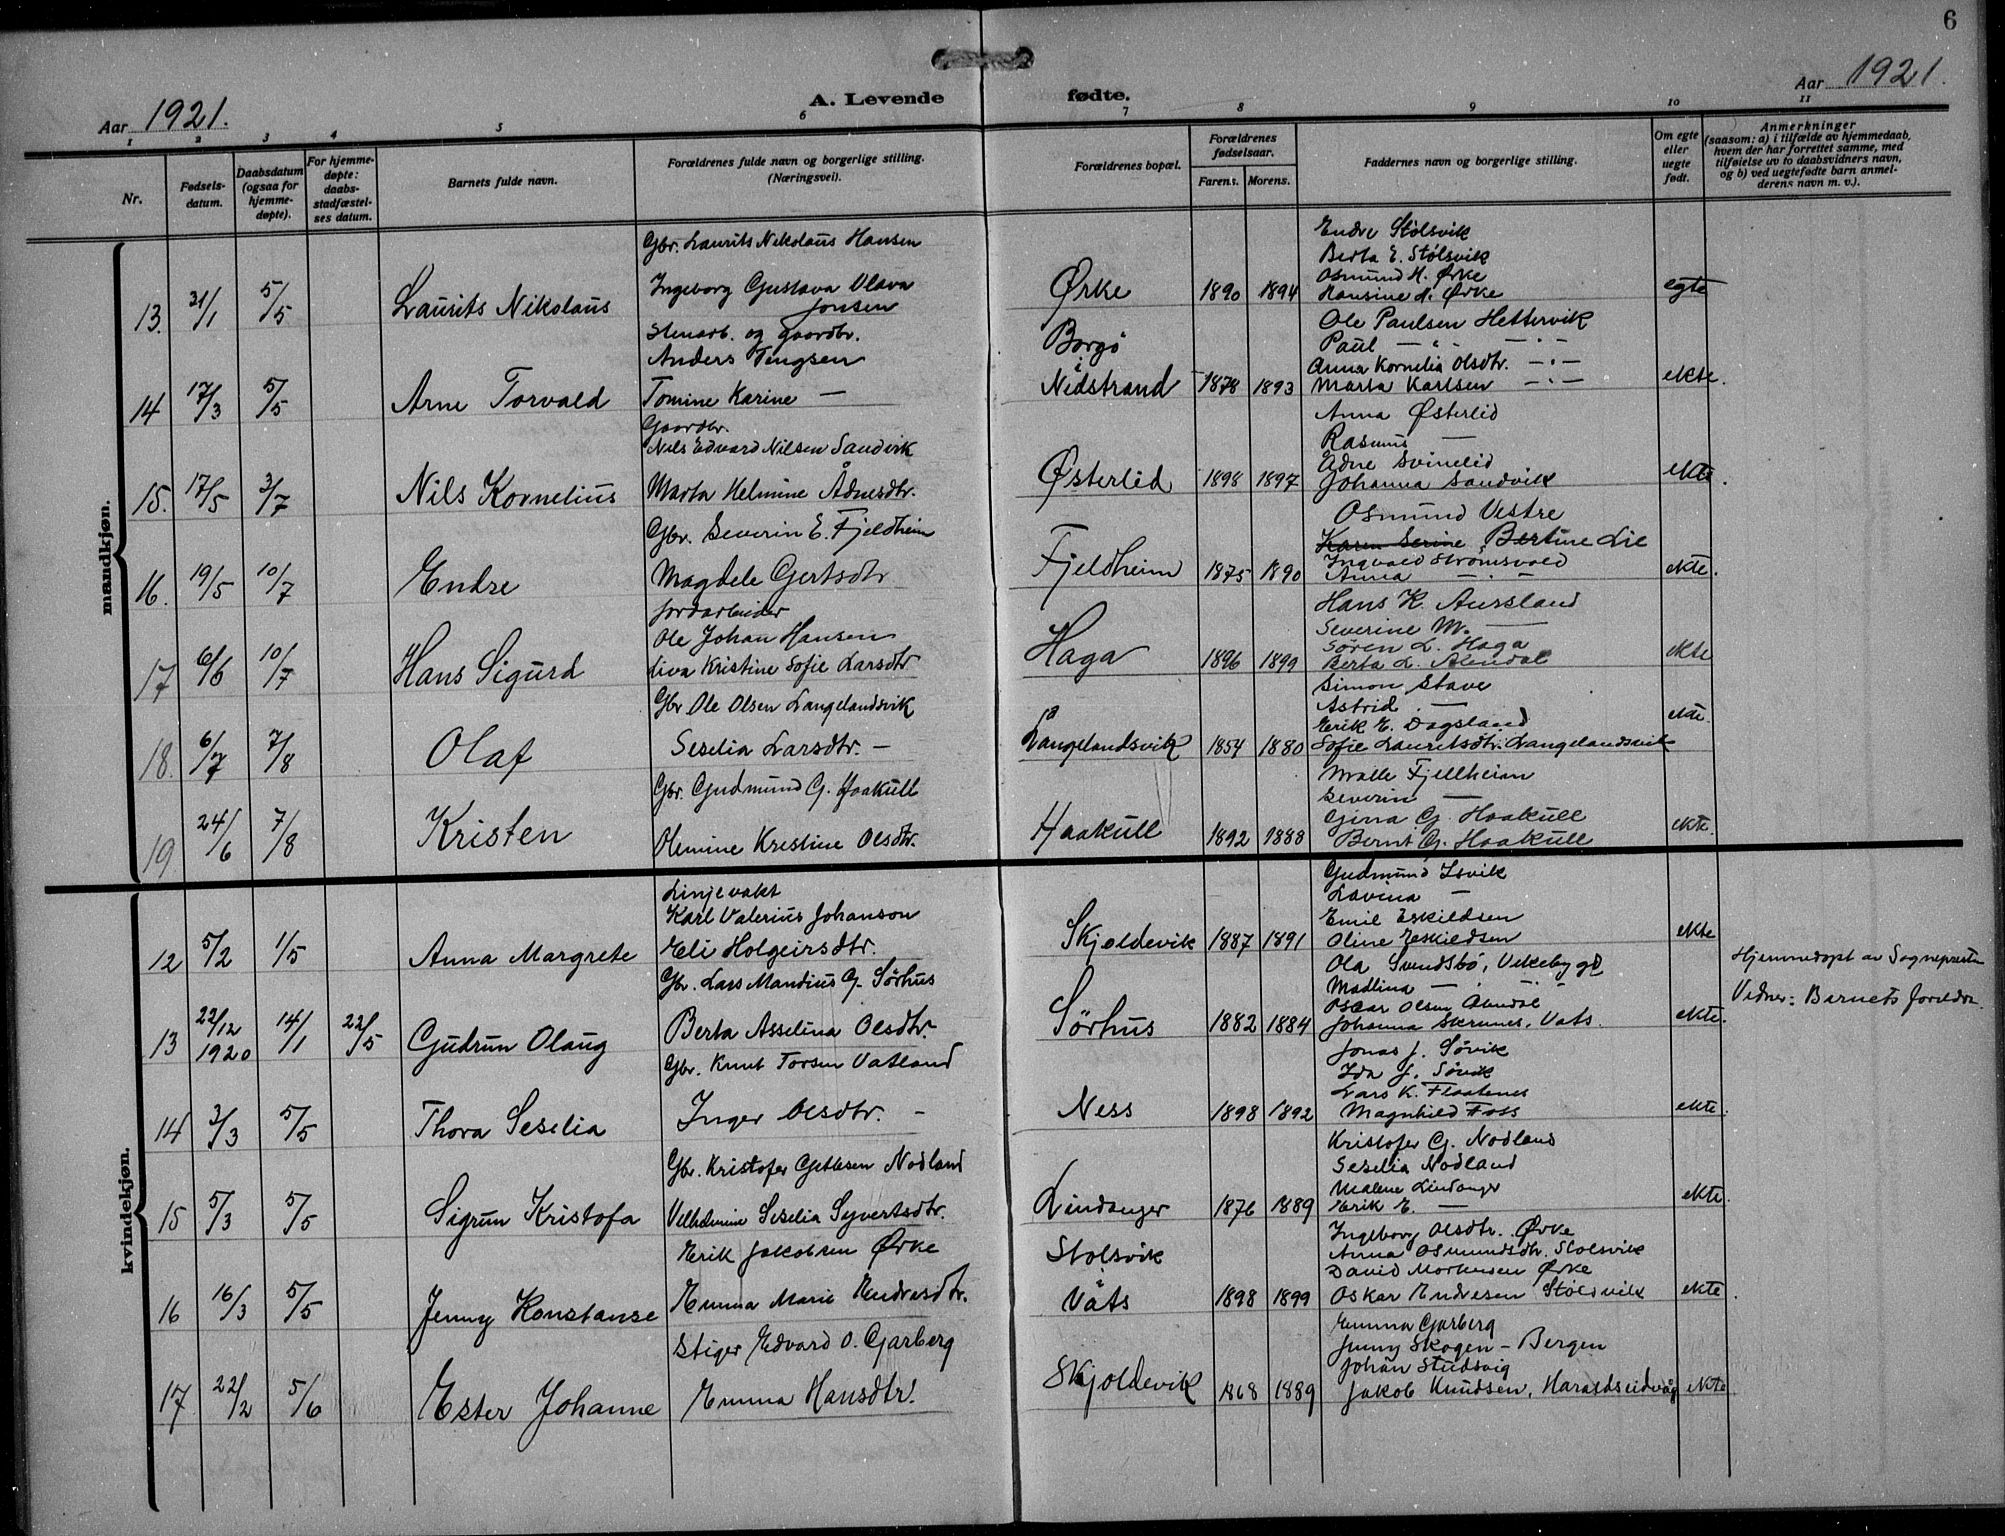 6
Aar 1921.
A. Levende fødte.
Aar 1921.
1 2 3 4 5 6 7 8 9 10 11
Nr.
Fødsels-datum.
Daabsdatum (ogsaa for hjemme-døpte).
For hjemme-døpte: daabs-stadfæstel-ses datum.
Barnets fulde navn.
Forældrenes fulde navn og borgerlige stilling.
(Næringsvei).
Forældrenes bopæl.
Forældrenes fødselsaar.
Farens. Morens.
Faddernes navn og borgerlige stilling.
Om egte eller uegte født.
Anmerkninger
(saasom: a) i tilfælde av hjemmedaab,
hvem der har forrettet samme, med
tilføielse uv to daabsvidners navn,
og b) ved uegtefødte barn anmel-
derens navn m. v.).
mandkjøn.
13. 31/1 5/5 Laurits Nikolaus
Gbr. Laurits Nikolaus Hansen
Ingeborg Gustava Olava
Jonsen
Ørke 1890 1894
Endre Stølsvik
Berta E. Stølsvik
Osmund H. Ørke
Hansine H. Ørke
egte
14 17/3 5/5 Arne Torvald
Stenarb. og gaardbr.
Anders Tengsen
Tomine Karine —
Borgö
i
Nedstrand 1878 1893
Ole Paulsen Hettervik
Paul — " — " —
Anna Kornelia Olsdtr. — " —
Marta Karlsen — " —
ekte.
15. 17/5 3/7 Nils Kornelius
Gaardbr.
Nils Edvard Nilsen Sandvik
Marta Helmine Ådnesdtr.
Østerlid 1898 1897
Anna Østerlid
Rasmus —
Adne Svinelid
Johanna Sandvik
ekte.
16. 19/5 10/7 Endre
Gbr. Severin E. Fjeldheim
Magdele Gertsdtr
Fjeldheim 1875 1890
Osmund Vestre
Karen Serine Bertine Lie
Ingvald Strømsvold
Anna — " —
ekte.
17 6/6 10/7 Hans Sigurd
Jordarbeider
Ole Johan Hansen
Liva Kristine Sofie Larsdtr
Haga 1896 1899
Hans K. Aursland
Severine M. —
Søren L. Haga
Berta L. Alendal
ekte
18. 6/7 7/8 Olaf
Gbr Ole Olsen Langelandsvik
Seselia Larsdtr. —
Langelandsvik 1854 1880
Simon Stave
Astrid —
Erik E. Dagsland
Sofie Lauritsdtr. Langelandsvik
ekte.
19 24/6 7/8 Kristen
Gbr. Gudmund G. Haakull
Olemine Kristine Olsdtr.
Haakull 1892 1888
Malle Fjellheim
Severin —
Gina G. Haakull
Bernt G. Haakull
ekte.
kvindekjøn.
12 5/2 1/5 Anna Margrete
Linjevakt
Karl Valerius Johanson
Eli Holgeirsdtr.
Skjoldevik 1887 1891
Gudmund Isvik
Lavina —
Emil Eskildsen
Oline Eskildsen
ekte
13 22/12 1920 14/1 22/5 Gudrun Olaug
Gbr. Lars Mandius G. Sørhus
Berta Asselina Olsdtr.
Sørhus 1882 1884
Ola Svendsbø, Vikebygd
Madlina — " —
Oscar Olsen Alendal
Johanna Skrunes, Vats.
ekte.
Hjemmedøpt av Sogneprsten
Vidner: Barnets foreldre.
14 3/3 5/5 Thora Seselia
Gbr. Knut Torsen Vatland
Inger Olsdtr. —
Ness 1898 1892
Jonas J. Søvik
Ida J. Søvik
Lars K. Flaatenes
Magnhild Foss
ekte.
15 5/3 5/5 Sigrun Kristofa
Gbr. Kristofer Gettesen Nodland
Velhelmine Seselia Syvertsdtr.
Lindanger 1876 1889
Kristofer G. Nodland
Seselia Nodland
Malene Lindanger
Erik E. —
ekte.
16 16/3 5/5 Jenny Konstanse
Erik Jakobsen Ørke
Emma Marie Endresdtr.
Stolsvik
i
Vats 1898 1899
Ingeborg Olsdtr. Ørke
Anna Osmundsdtr. Stolsvik
David Mortensen Ørke
Oskar Endresen Stølsvik
ekte.
17 22/2 5/6 Ester Johanne
Stiger Edvard O. Garberg
Emma Hansdtr.
Skjoldevik 1868 1889
Emma Garberg
Jenny Skogen - Bergen
Johan Studsvig
Jakob Knudsen, Haraldseidvåg
ekte